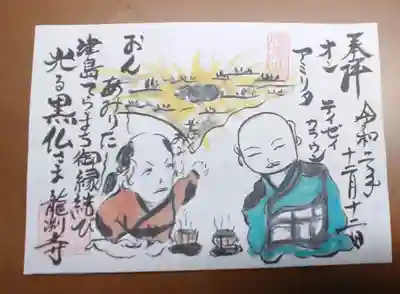 奉拝
オン
アミリタ
テイゼイ
カラウン
令和二年
十二月十二日
おん
あみりた
津島てらまち御縁結び
光る黒仏さま 龍渕寺